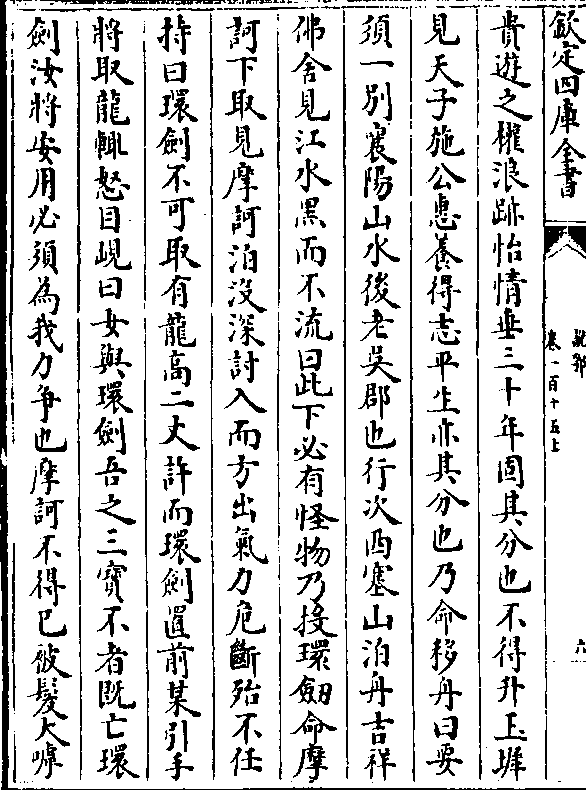 欽定四庫全書
說郛
卷一百十五上
六
貴遊之權浪跡怡情垂三十年固其分也不得升玉墀
見天子施公惠養得志平生亦其分也乃命移舟曰要
須一別襄陽山水後老吳郡也行次西塞山泊舟吉祥
佛舍見江水黑而不流曰此下必有怪物乃投環劒命摩
訶下取見摩訶泊沒深討入而方出氣力危斷殆不任
持曰環劍不可取有龍高二丈許而環劍置前某引手
將取龍輙怒目峴曰女與環劍吾之三寶不者既亡環
劍汝將安用必須為我力爭也摩訶不得已被髮大噱